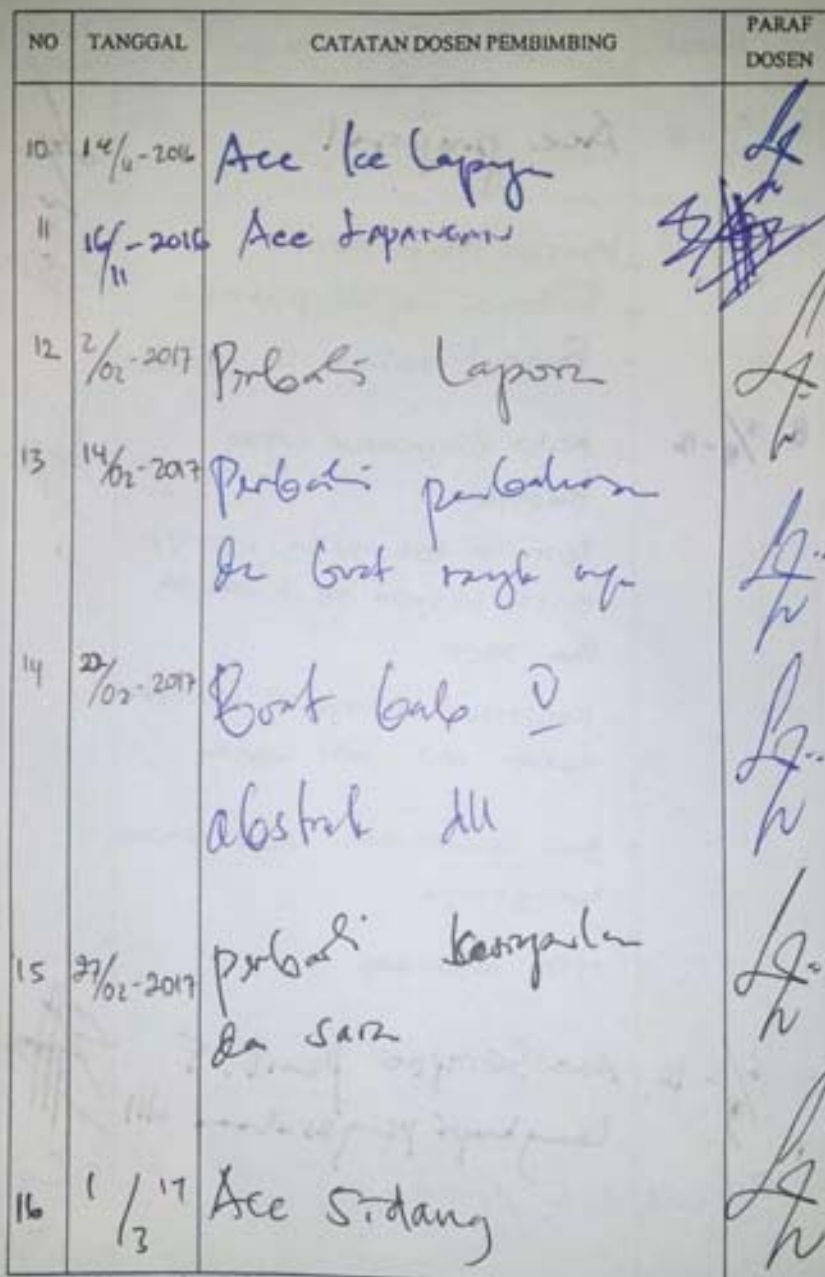 NO TANGGAL CATATAN DOSEN PEMBIMBING PARAF DOSEN
10 14/11-2016 Acc ke Lapangan
11 16/11-2016 Acc LAPANGAN
12 2/02-2017 Perbaiki Laporan
13 14/02-2017 Perbaiki pembahasan
dan buat
14 22/02-2017 Buat bab V
abstrak dll
15 27/02-2017 perbaiki kesimpulan
dan saran
16 1/3 17 Acc Sidang